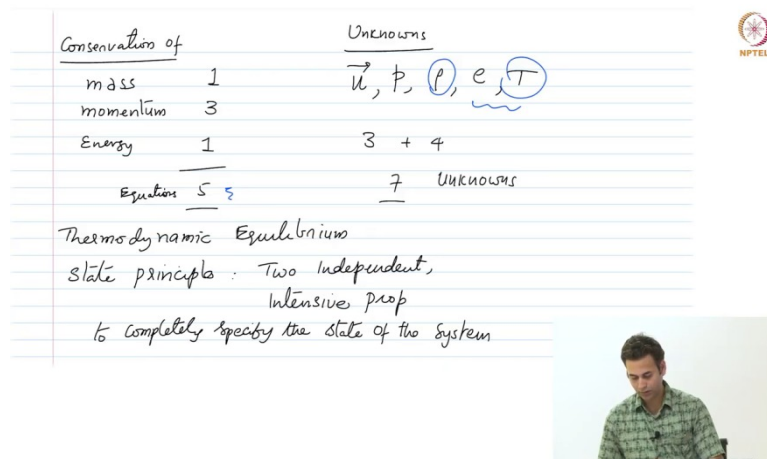 Conservation of
mass 1
momentum 3
Energy 1
Equations 5
Unknowns
u⃗, p, ρ, e, T
3 + 4
7 Unknowns
Thermodynamic Equilibrium
State principle : Two Independent,
Intensive prop
to completely specify the state of the system
NPTEL